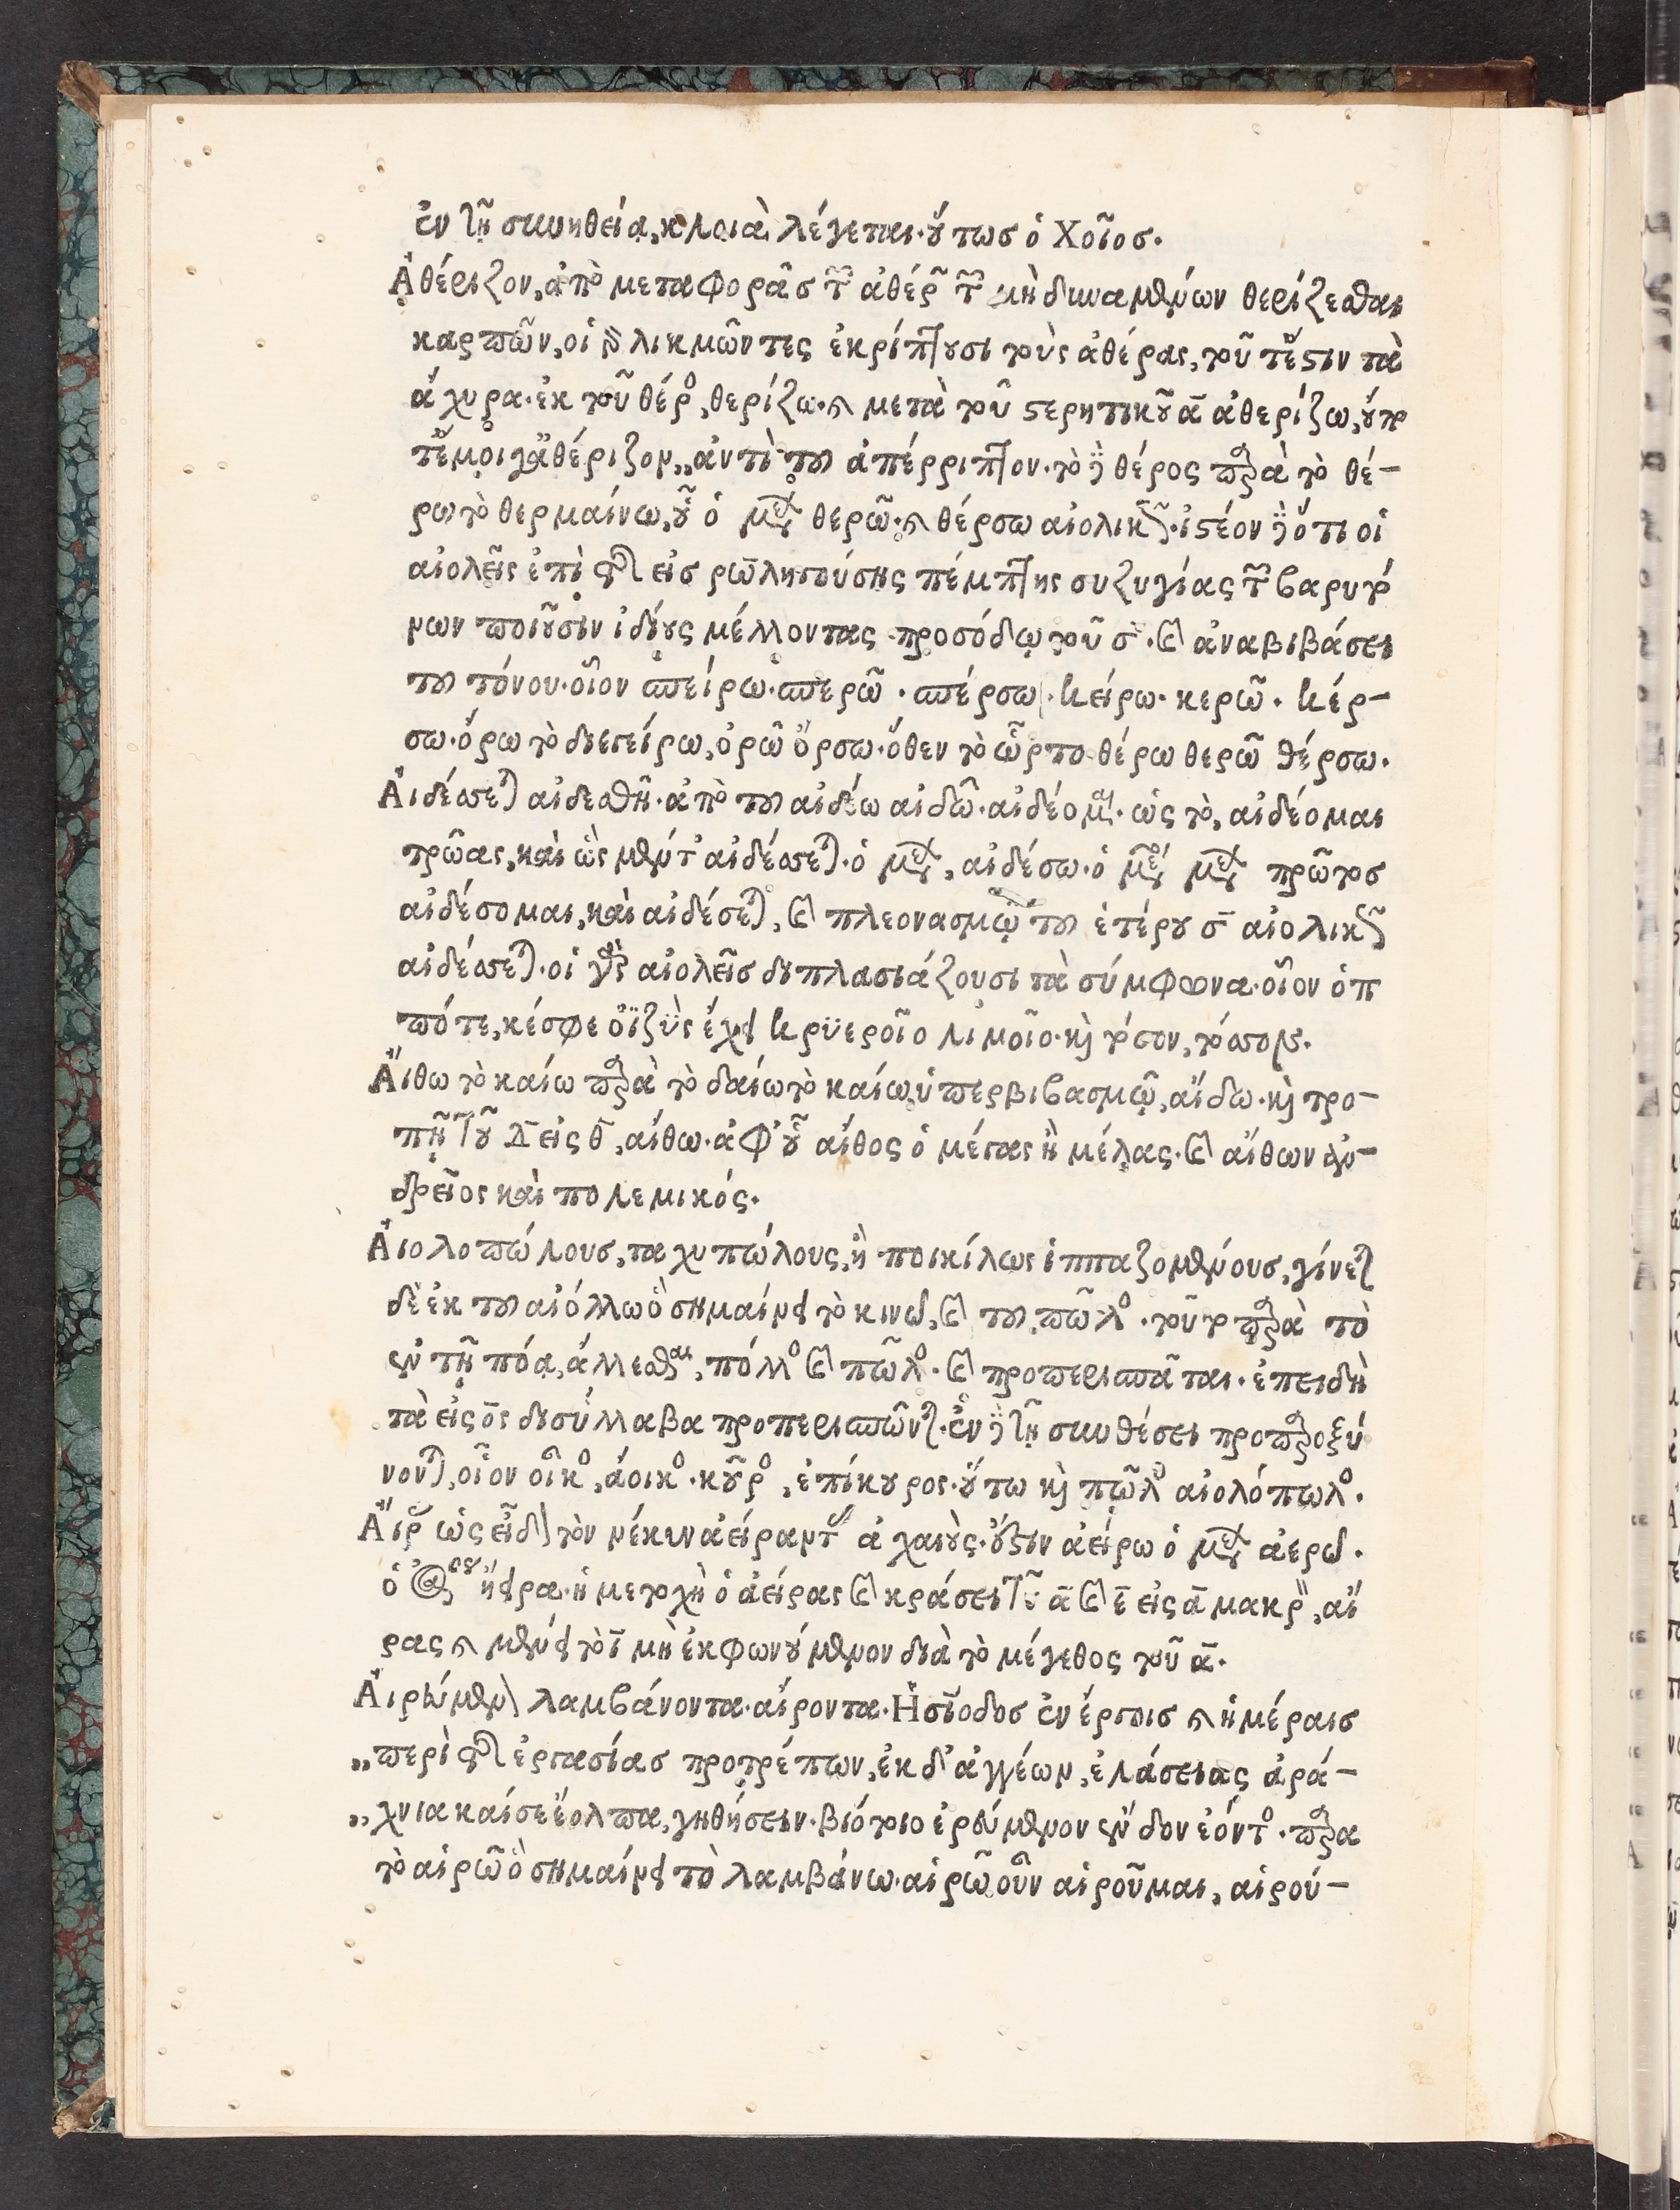 ἐν τῇ συνηθείᾳ, κλοιὰ λέγεται. οὕτωσ ὁ Χοῖοσ.
Ἀθέριζον, ἀπὸ μεταφορᾶσ τῶν ἀθέρων τῶν μὴ δυναμένων θερίζεσθαι
καρπῶν, οἱ γὰρ λικμῶντες ἐκρίπτουσι τοὺς ἀθέρας, τουτέστιν τὰ
ἄχυρα. ἐκ τοῦ θέρος, θερίζω. καὶ μετὰ τοῦ στερητικοῦ ᾱ ἀθερίζω, οὔπο
τ' ἔμοιγ' ἀθέριζον,, ἀντὶ τοῦ ἀπέρριπτον. τὸ δὲ θέρος παρὰ τὸ θέ-
ρω τὸ θερμαίνω, οὗ ὁ μέλλων θερῶ. καὶ θέρσω αἰολικῶς. ἰστέον δὲ ὅτι οἱ
αἰολεῖς ἐπὶ τῆς εἰσ ρω ληγούσης πέμπτης συζυγίας τῶν βαρυτό
νων ποιοῦσιν ἰδίους μέλλοντας προσόδῳ τοῦ σ. καὶ ἀναβιβάσει
τοῦ τόνου. οἷον σπείρω. σπερῶ. σπέρσω. κείρω. κερῶ. κέρ-
σω. ὄρω τὸ διεγείρω, ὀρῶ ὄρσω. ὅθεν τὸ ὦρτο θέρω θερῶ θέρσω.
Αἰδέσσεται αἰδεσθῇ. ἀπὸ τοῦ αἰδέω αἰδῶ. αἰδέομαι. ὡς τὸ, αἰδέομαι
τρῶας, καὶ ὣς μέν τ' αἰδέσσεται. ὁ μέλλων, αἰδέσω. ὁ μέσος μέλλων πρῶτοσ
αἰδέσομαι, καὶ αἰδέσεται, καὶ πλεονασμῷ τοῦ ἑτέρου σ αἰολικῶς
αἰδέσσεται. οἱ γὰρ αἰολεῖσ διπλασιάζουσι τὰ σύμφωνα. οἷον ὁπ
πότε, κέσφε ὀϊζὺς ἔχει κρϋεροῖο λιμοῖο. καὶ τόσον, τόσσον.
Αἴθω τὸ καίω παρὰ τὸ δαίω τὸ καίω, ὑπερβιβασμῷ, αἴδω. καὶ τρο-
πῇ τοῦ δ εἰς θ, αἴθω. ἀφ' οὗ αἴθος ὁ μέγας ἢ μέλας. καὶ αἴθων ἀν-
δρεῖος καὶ πολεμικός.
Αἰολοπώλουσ, ταχυπώλους, ἢ ποικίλως ἱππαζομένουσ, γίνεται
δὲ ἐκ τοῦ αἰόλλω ὃ σημαίνει τὸ κινῶ, καὶ τοῦ πῶλος. τοῦτο παρὰ τὸ
ἐν τῇ πόᾳ, ἄλλεσθαι, πόλλος καὶ πῶλος. καὶ προπερισπᾶται. ἐπειδὴ
τὰ εἰς ος δισύλλαβα προπερισπῶνται. ἐν δὲ τῇ συνθέσει προπαροξύ
νονται, οἷον οἶκος, ἄοικος. κοῦρος, ἐπίκουρος. οὕτω καὶ πῶλος αἰολόπωλος.
Αἴροντας ὡς εἶδεν τὸν νέκυν ἀείραντας ἀχαιούς. ἔστιν ἀείρω ὁ μέλλων ἀερῶ.
ὁ ἀόριστος ἤειρα. ἡ μετοχὴ ὁ ἀείρας καὶ κράσει τοῦ ᾱ καὶ ε̄ εἰς ᾱ μακρὸν, αἴ
ρας καὶ μένει τὸ ῑ μὴ ἐκφωνούμενον διὰ τὸ μέγεθος τοῦ ᾱ.
Αἰρούμενον λαμβάνοντα. αἴροντα. Ἡσίοδοσ ἐν ἔργοισ καὶ ἡμέραισ
,,περὶ τῆς ἐργασίασ προτρέπων, ἐκ δ' ἀγγέων, ἐλάσειας ἀρά-
,,χνια καίσε ἔολπα, γηθήσειν. βιότοιο ἐρούμενον ἔνδον ἐόντος. παρα
τὸ αἱρῶ ὃ σημαίνει τὸ λαμβάνω. αἱρῶ οὖν αἱροῦμαι, αἱρού-